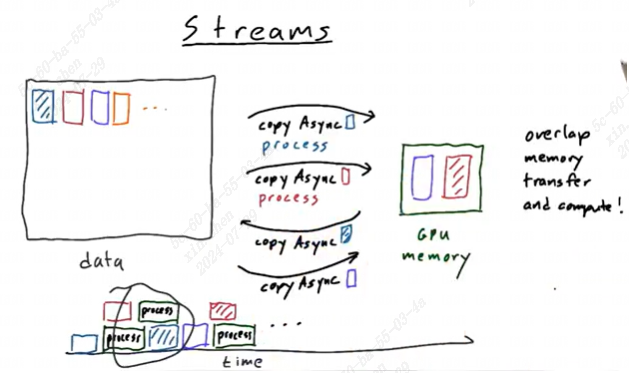 Streams
copy Async
process
copy Async
process
copy Async
copy Async
data
GPU
memory
overlap
memory
transfer
and compute!
process
process
process
...
time